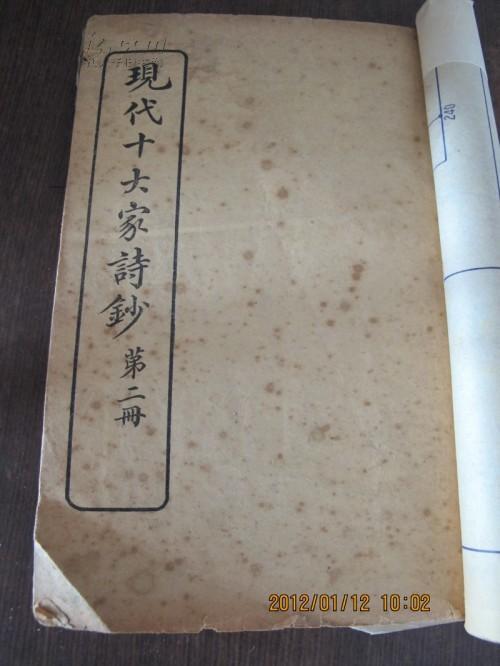 現代十大家詩鈔 第二冊
240
2012/01/12 10:02